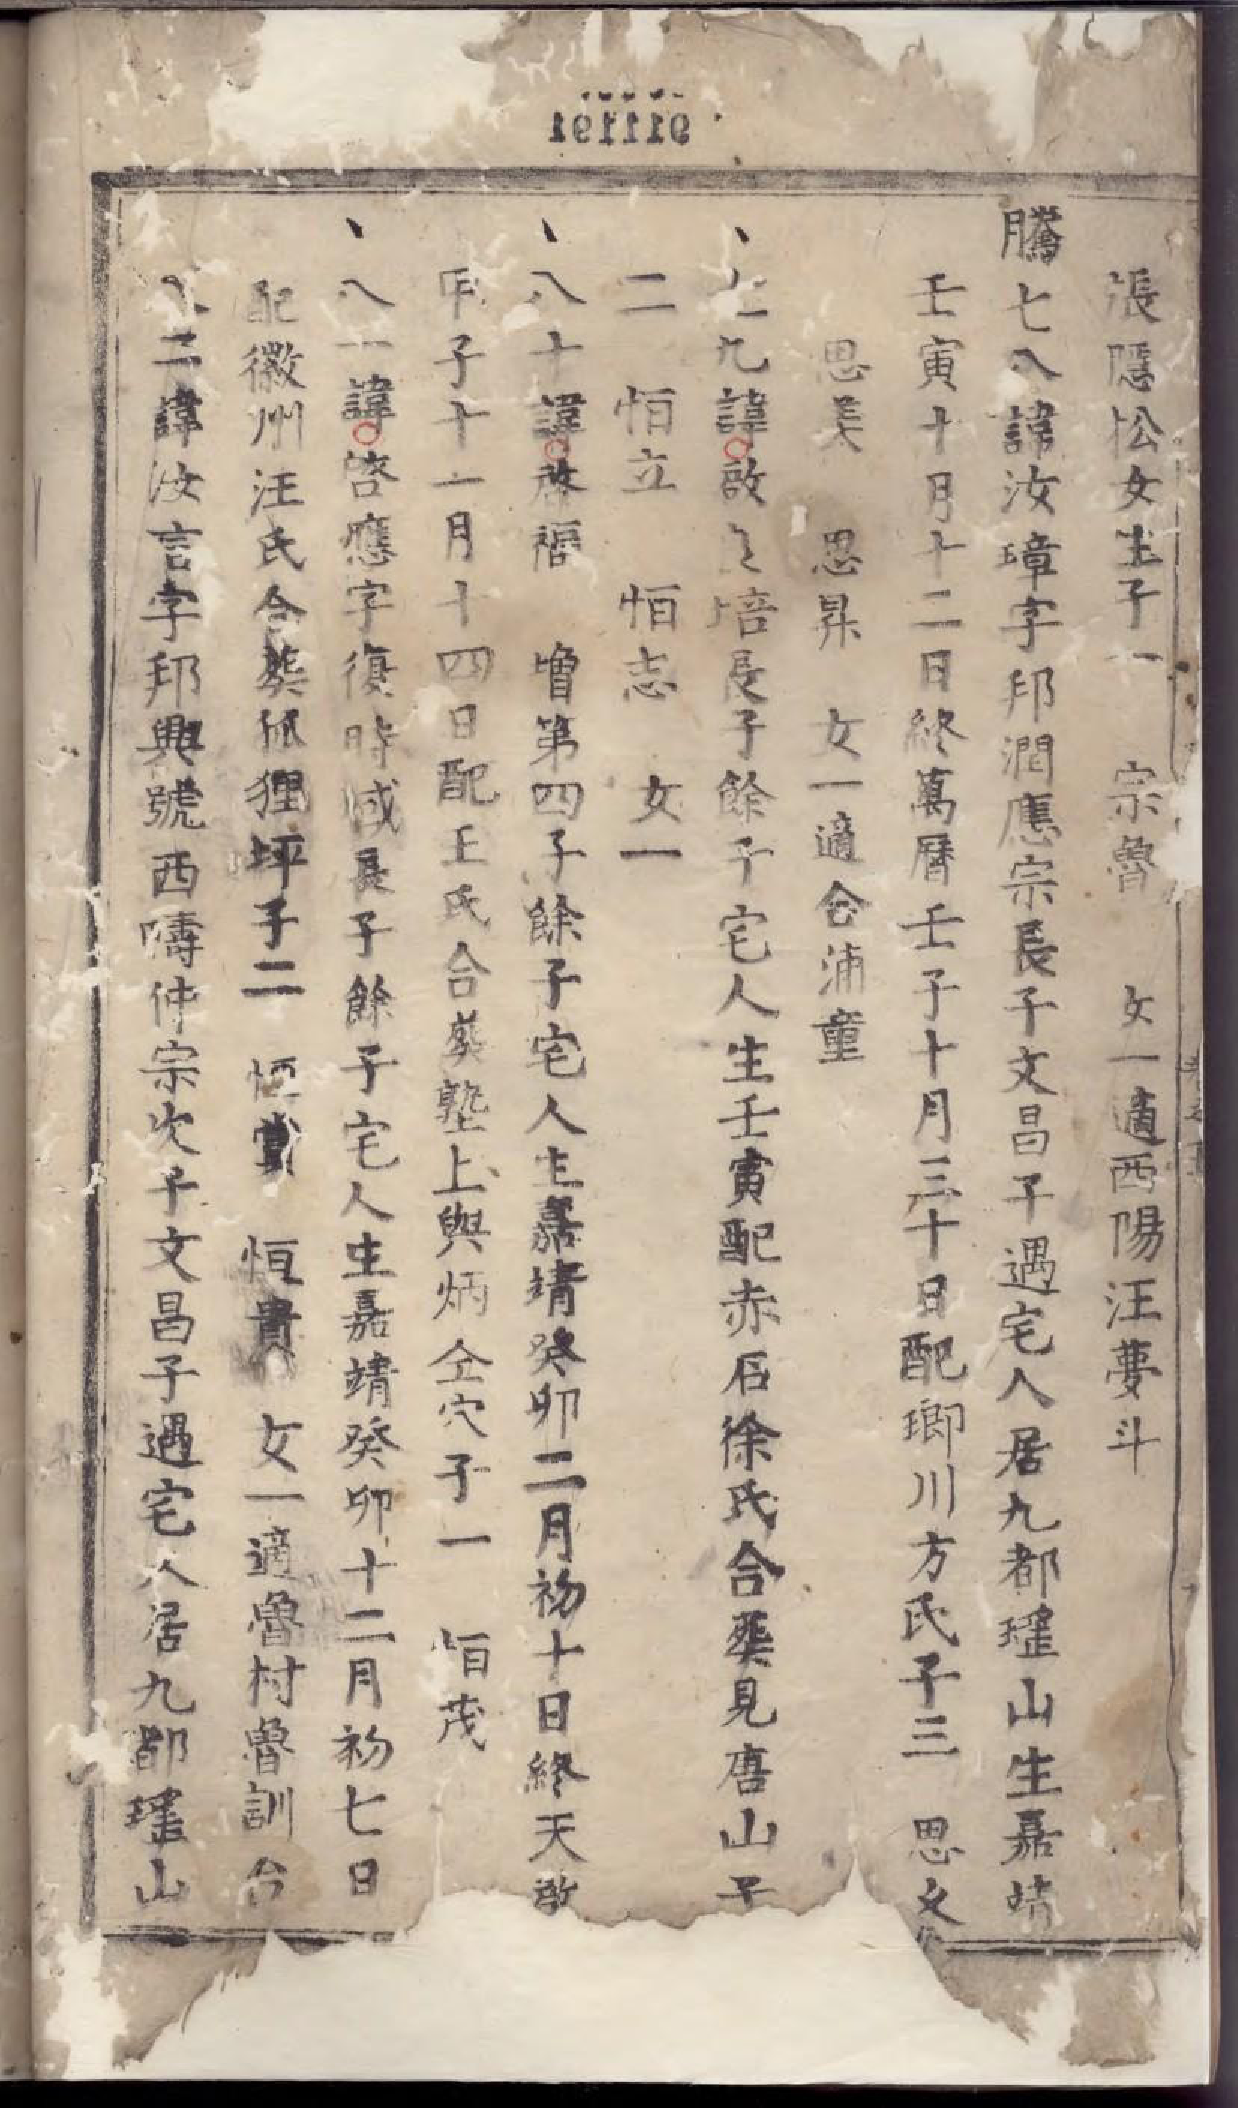 張隱松女生子一 宗魯 女一適西陽汪夢斗
騰七八諱汝璋字邦潤應宗長子文昌子遇宅人居九都瑤山生嘉靖
壬寅十月十二日終萬曆壬子十月三十日配瑯川方氏子三 思文
思美 思昇 女一適合浦童
九諱啟 培長子餘子宅人生壬寅配赤石徐氏合葬見唐山子
二 恒立 恒志 女一
八十諱啓福 增第四子餘子宅人生嘉靖癸卯二月初十日終天啟
甲子十一月十四日配王氏合葬墊上與炳仝穴子一 恒茂
八一諱啓應字復時 長子餘子宅人生嘉靖癸卯十二月初七日
配徽州汪氏合葬狐狸坪子二 恒賞 恒貴 女一適魯村魯訓台
八二諱汝言字邦興號西疇仲宗次子文昌子遇宅人居九都瑤山
191116